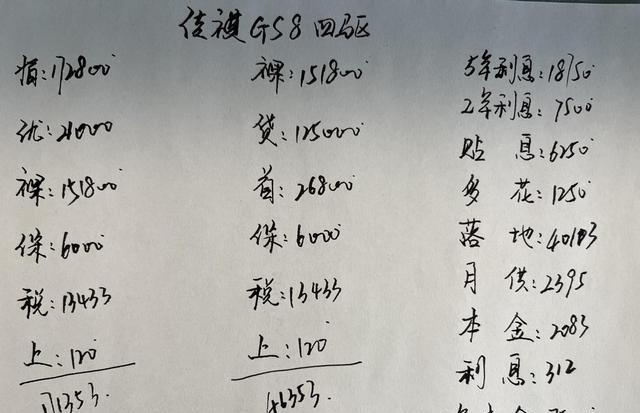 传祺GS8 四驱
指:172800
优:21000
裸:151800
保:6000
税:13433
上:120
171353.
裸:151800
贷:125000
首:26800
保:6000
税:13433
上:120
46353.
5年利息:18750
2年利息:7500
贴息:6250
多花:1250
落地:40103
月供:2395
本金:2083
利息:312